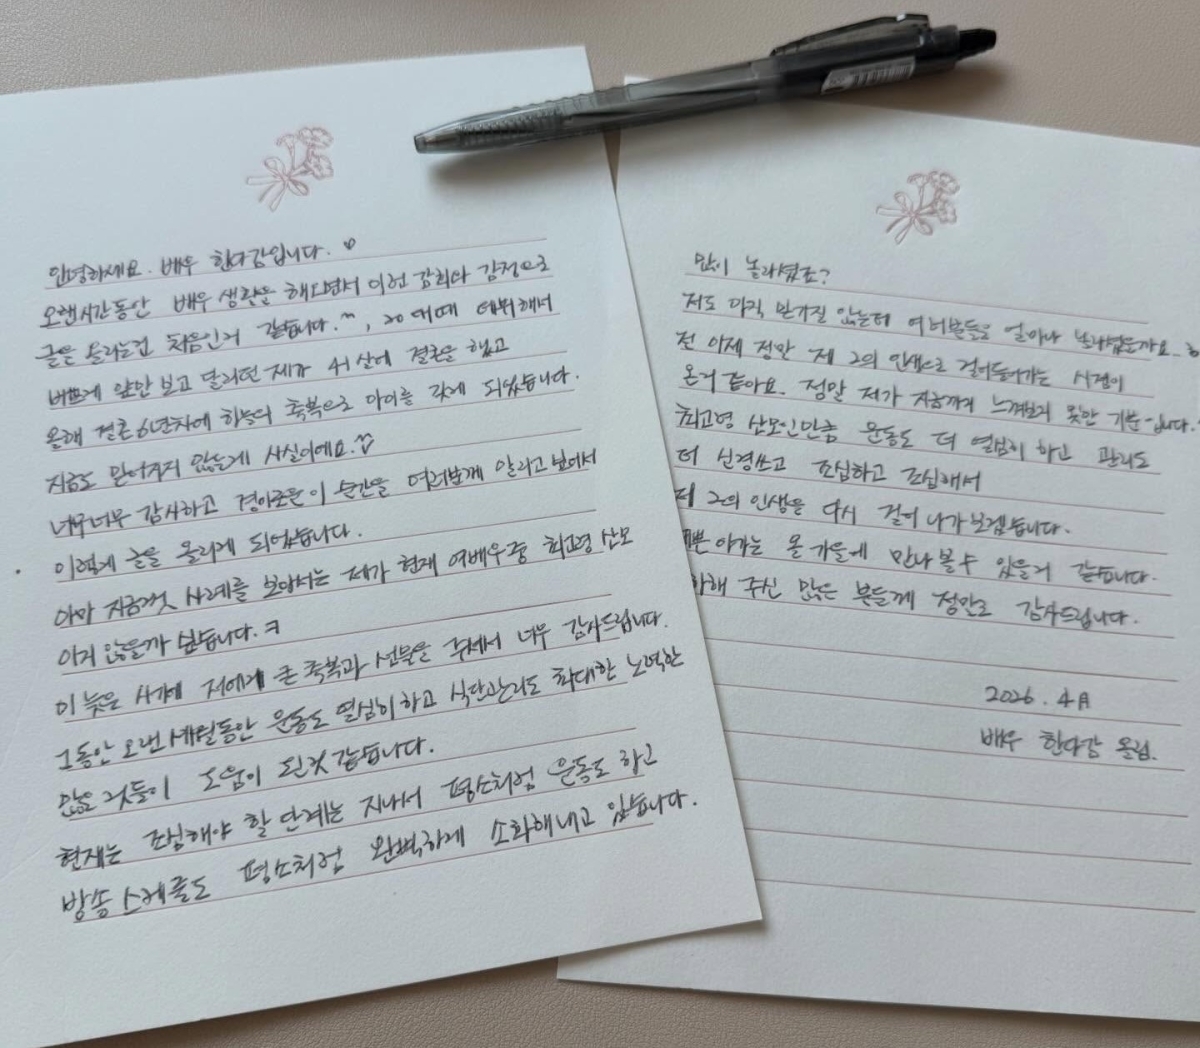 안녕하세요. 배우 한다감입니다. ♡
오랜시간동안 배우 생활을 해오면서 이런 감회와 감정으로
글을 올리는건 처음인거 같습니다.^^, 20대때 데뷔해서
바쁘게 앞만 보고 달리던 제가 41살에 결혼을 했고
올해 결혼 6년차에 하늘의 축복으로 아이를 갖게 되었습니다.
지금도 믿어지지 않는데 사실이에요.
너무너무 감사하고 경이로운 이 순간을 여러분께 알리고 싶어서
이렇게 글을 올리게 되었습니다.
아마 지금껏 사례를 보아서는 제가 현재 여배우중 최고령 산모
이지 않을까 싶습니다.ㅋ
이 늦은 시기에 저에게 큰 축복과 선물을 주셔서 너무 감사드립니다.
그동안 오랜 세월동안 운동도 열심히 하고 식단관리도 최대한 노력한
많은 것들이 도움이 된것 같습니다.
현재는 조심해야 할 단계는 지나서 평소처럼 운동도 하고
방송 스케줄도 평소처럼 완벽하게 소화해내고 있습니다.
많이 놀라셨죠?
저도 아직 믿기질 않는데 여러분들은 얼마나 놀라셨을까요.
전 이제 정말 제 2의 인생으로 걸어들어가는 시점이
온거 같아요. 정말 제가 지금까지 느껴보지 못한 기분입니다.
최고령 산모인만큼 운동도 더 열심히 하고 관리도
더 신경쓰고 조심하고 조심해서
제 2의 인생을 다시 걸어 나가보겠습니다.
쁜 아가는 올 가을에 만나볼 수 있을거 같습니다.
하해 주신 많은 분들께 정말로 감사드립니다.
2026. 4月
배우 한다감 올림.